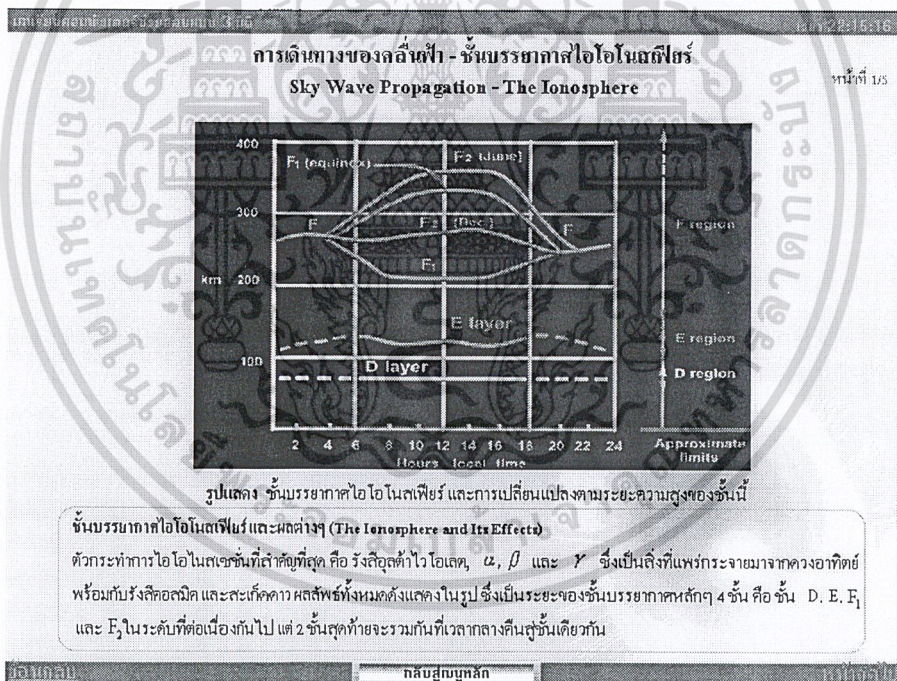 บทเรียนคอมพิวเตอร์ช่วยสอนแบบ 3 มิติ
22:15:16
การเดินทางของคลื่นฟ้า - ชั้นบรรยากาศไอโอโนสเฟียร์
Sky Wave Propagation - The Ionosphere
หน้าที่ 1/5
400
F₁ (equinox)
F₂ (June)
300
F
F₂ (Dec.)
F
F region
F₁
km
200
E layer
E region
100
D layer
D region
2 4 6 8 10 12 14 16 18 20 22 24
Hours local time
Approximate
limits
รูปแสดง ชั้นบรรยากาศไอโอโนสเฟียร์ และการเปลี่ยนแปลงตามระยะความสูงของชั้นนี้
ชั้นบรรยากาศไอโอโนสเฟียร์และผลต่างๆ (The Ionosphere and Its Effects)
ตัวกระทำการไอโอไนสเซชั่นที่สำคัญที่สุด คือ รังสีอุลต้าไวโอเลต, α, β และ γ ซึ่งเป็นสิ่งที่แพร่กระจายมาจากดวงอาทิตย์
พร้อมกับรังสีคอสมิค และสะเก็ดดาว ผลลัพธ์ทั้งหมดดังแสดงในรูป ซึ่งเป็นระยะของชั้นบรรยากาศหลักๆ 4 ชั้น คือ ชั้น D, E, F₁
และ F₂ ในระดับที่ต่อเนื่องกันไป แต่ 2 ชั้นสุดท้ายจะรวมกันที่เวลากลางคืนสู่ชั้นเดียวกัน
ย้อนกลับ
กลับสู่เมนูหลัก
สถาบันเทคโนโลยีพระจอมเกล้าเจ้าคุณทหารลาดกระบัง